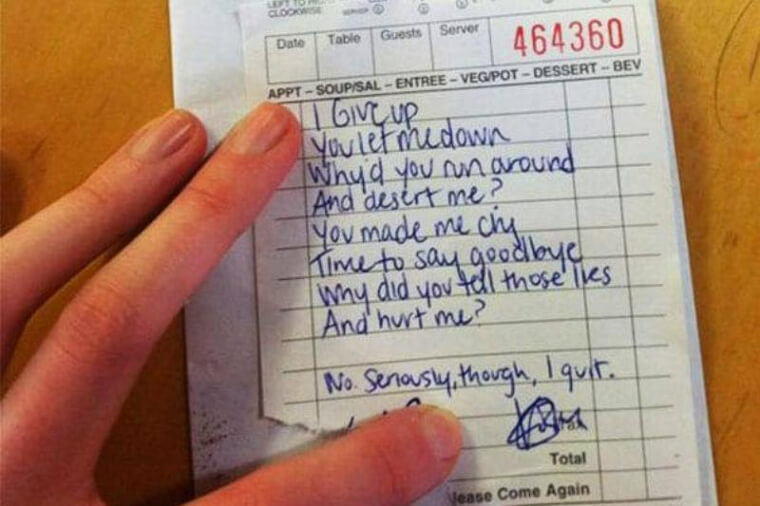 LEFT TO
CLOCKWISE
Date Table Guests Server 464360
APPT – SOUP/SAL – ENTREE – VEG/POT – DESSERT – BEV
I Give up
You let me down
Why'd you run around
And desert me?
You made me cry
Time to say goodbye
Why did you tell those lies
And hurt me?
No. Seriously, though, I quit.
Total
lease Come Again